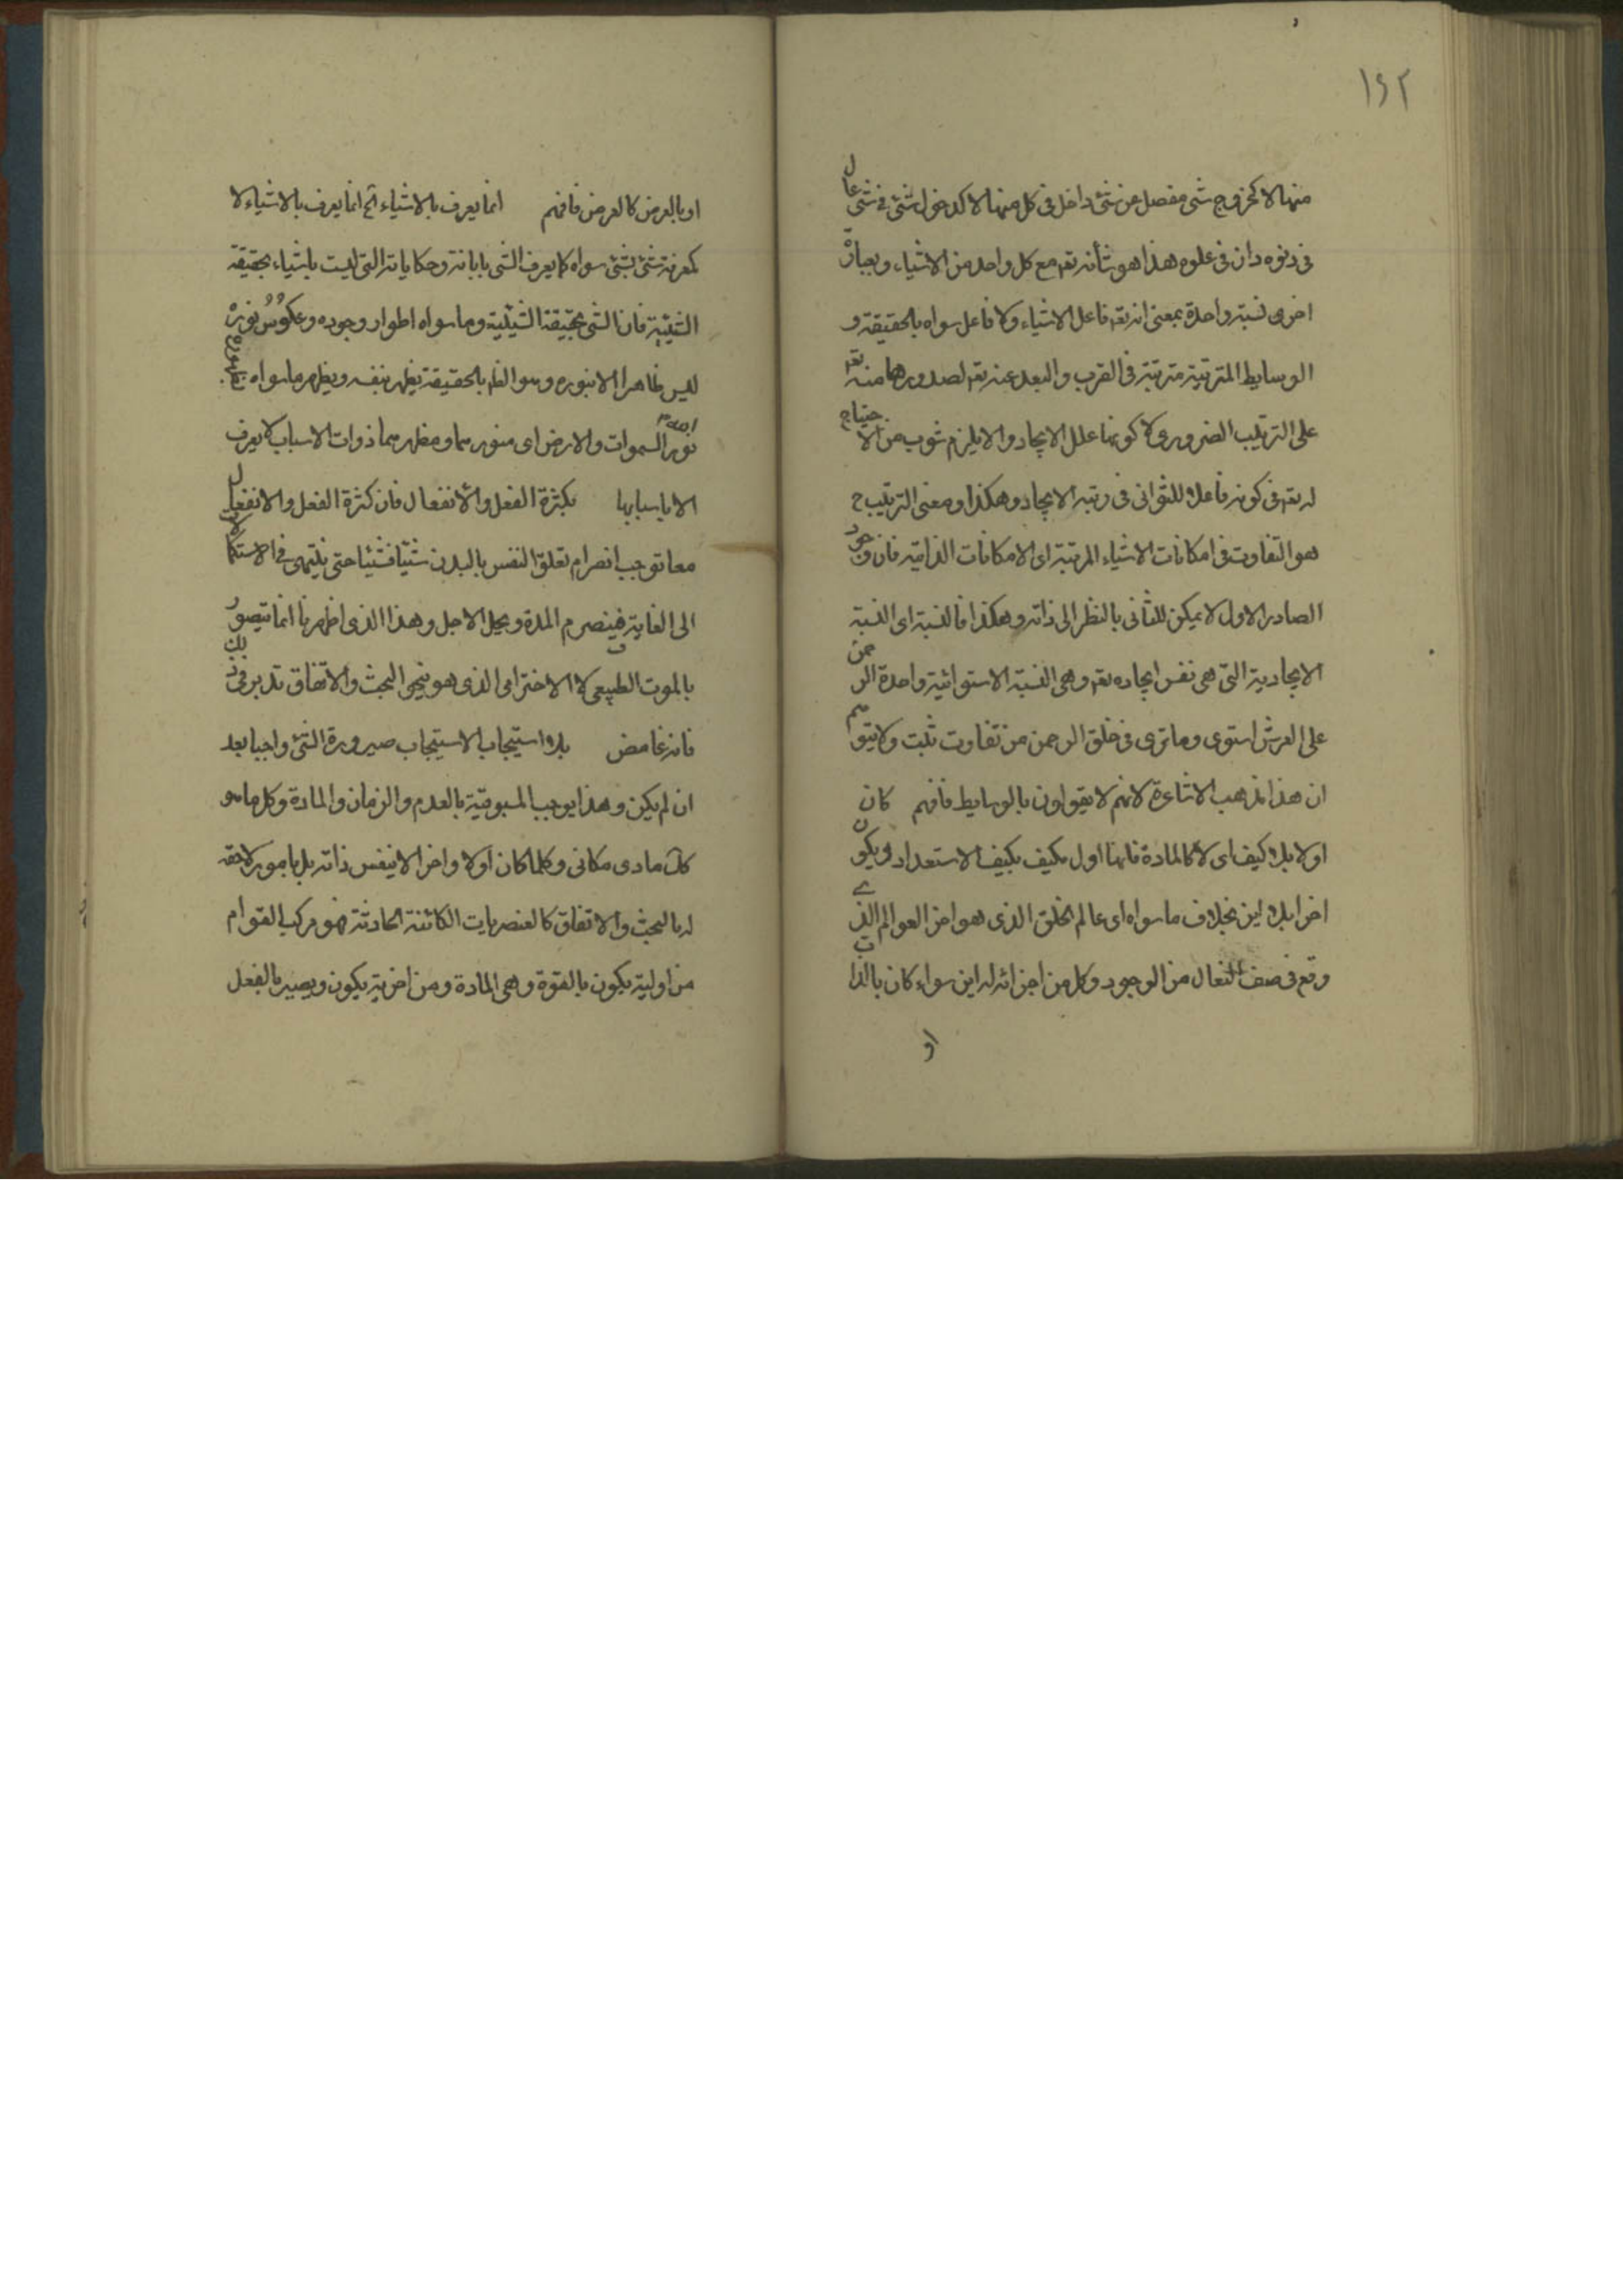 ١٤٢
منها لا كخروج شی مفصل من شئ داخل فی كل منها لا كدخول شئ فی شئ عال
فی دنوه دان فی علوه هذا هو شأنه تعم مع كل واحد من الاشیاء وبعبارة
اخری نسبة واحدة بمعنی انه تعم فاعل الاشیاء ولا فاعل سواه بالحقیقة و
الوسایط المترتبة مترتبة فی القرب والبعد عنه تعم لصدورهما منه تعم
علی الترتیب الضروری لا كونها علل الایجاد والا یلزم شوب من الاحتیاج
له تعم فی كونه فاعلا للثوانی فی رتبه الایجاد وهكذا ومعنی الترتیب ح
هو التفاوت فی امكانات الاشیاء المرتبة ای الامكانات الذاتیه فان وجود
الصادر الاول لا یمكن للثانی بالنظر الی ذاته وهكذا فالنسبة ای النسبة
الایجادیة التی هی نفس ایجاده تعم وهی النسبة الاستوائیة واحدة الرحمن
علی العرش استوی وما تری فی خلق الرحمن من تفاوت تثبت ولا یتوهم
ان هذا مذهب الاشاعرة لانهم لا یقولون بالوسایط فافهم كان
اولا بلا كیف ای لا كالمادة فانها اول مكیف بكیف الاستعداد ویكون
اخرا بلا این بخلاف ما سواه ای عالم الخلق الذی هو اخر العوالم الذی
وقع فی صف النعال من الوجود وكل من اجزائه له این سواء كان بالذات
او
او بالعرض كالعرض فافهم انما یعرف بالاشیاء الخ انما یعرف بالاشیاء لا
كمعرفة شئ بشئ سواه كما یعرف الشی بایاته وحكایاته التی لیست باشیاء بحقیقة
الشیئیة فان الشی بحقیقة الشیئیة وما سواه اطوار وجوده وعكوس نوره
لیس ظاهرا الا بنوره وهو الظم بالحقیقة یظهر بنفسه ویظهر ما سواه
الله نور السموات والارض ای منورهما ومظهرهما ذوات الاسباب لا یعرف
الا باسبابها بكثرة الفعل والانفعال فان كثرة الفعل والانفعال
معا توجب انصرام تعلق النفس بالبدن شیئا فشیئا حتی ینتهی فی الاستكمال
الی الغایة فینصرم المدة ویحل الاجل وهذا الذی اظهرنا انما یتصور
بالموت الطبیعی لا الاخترامی الذی هو بنحو البحث والاتفاق تدبر فی ذلك
فانه غامض بلا استیجاب الاستیجاب صیرورة الشئ واجبا بعد
ان لم یكن وهذا یوجب المسبوقیة بالعدم والزمان والمادة وكل ما هو
كك مادی مكانی وكلما كان اولا واخرا لا بنفس ذاته بل بامور لاحقه
له بالبحث والاتفاق كالعنصریات الكائنة الحادثة فهو مركب القوام
من اولیة یكون بالقوة وهی المادة ومن اخریة یكون ویصیر بالفعل